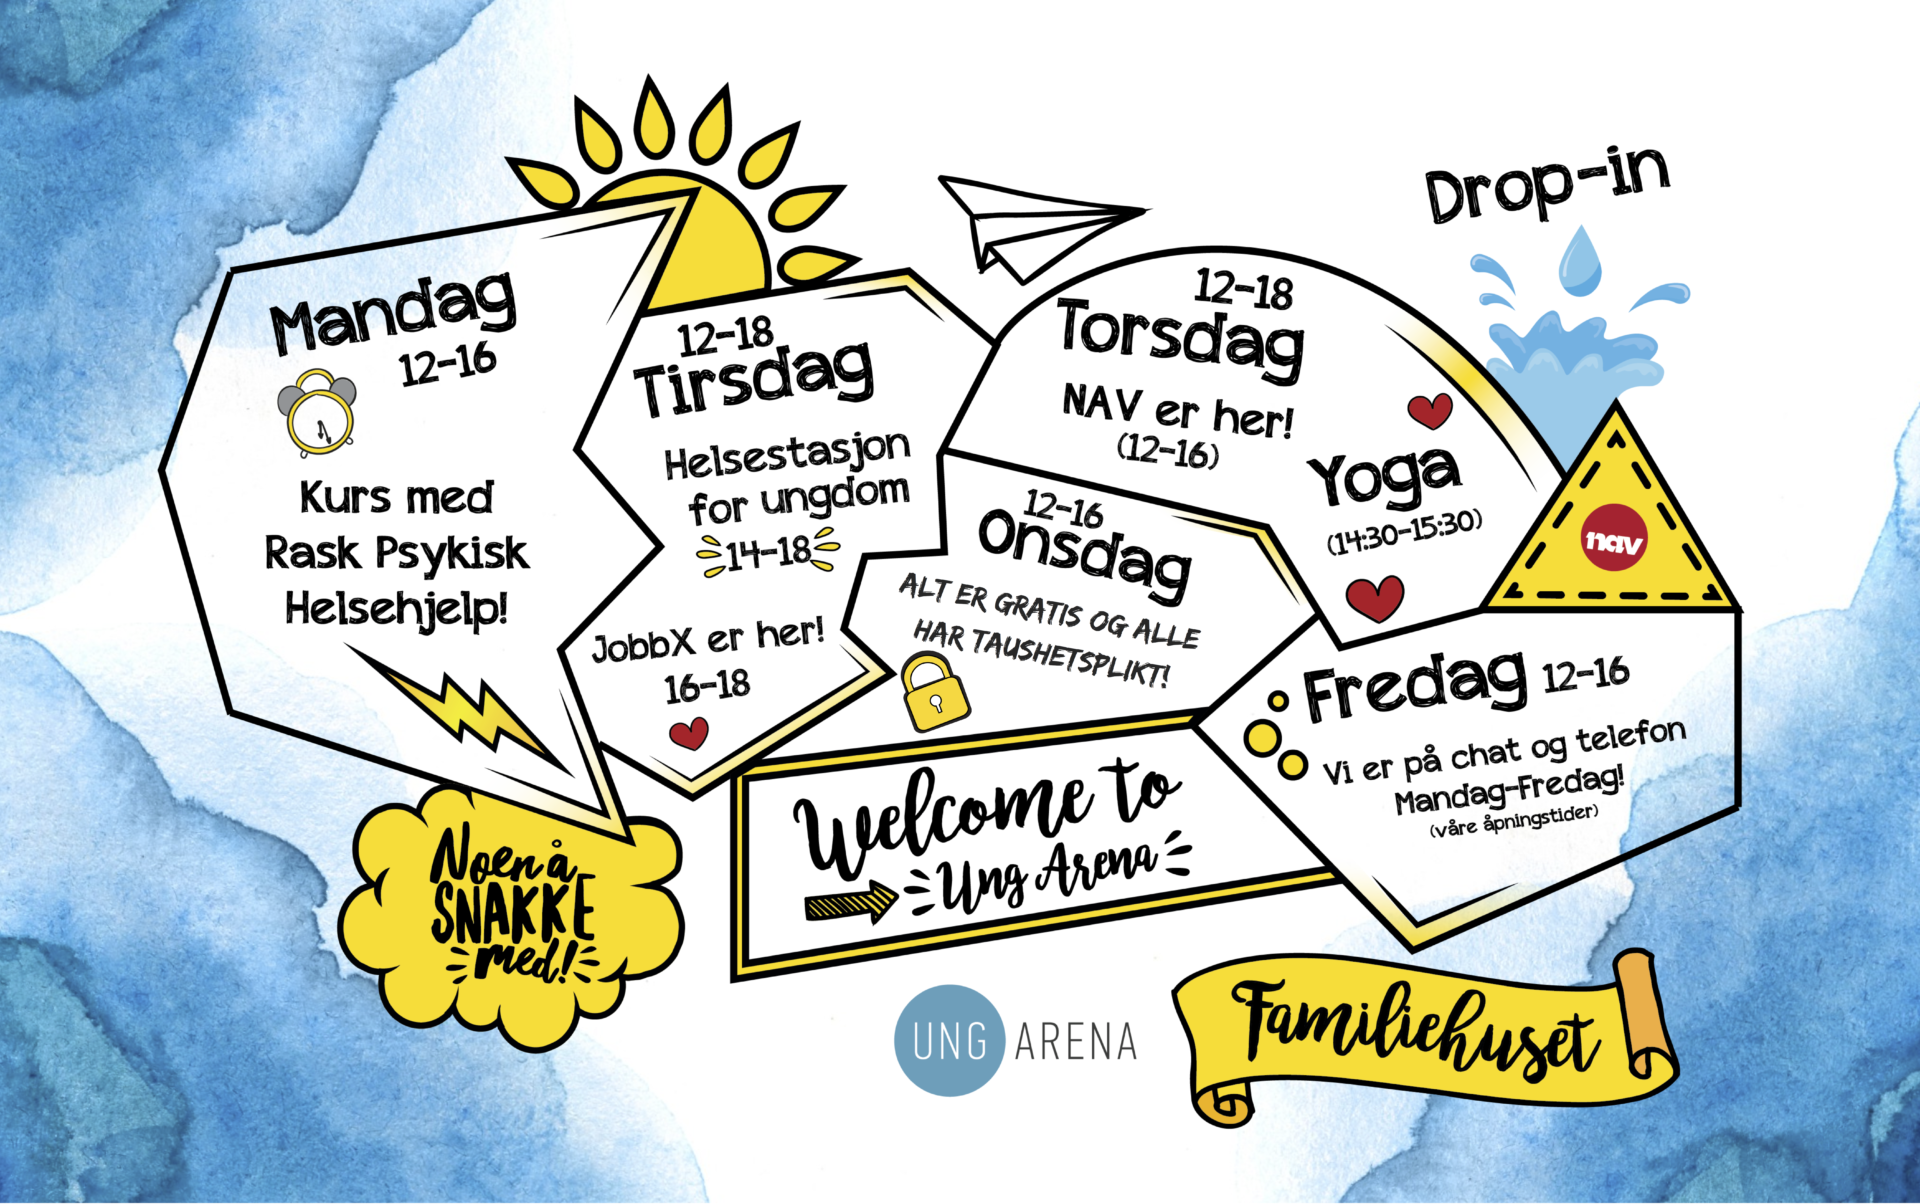 Drop-in
Mandag
12-16
Kurs med
Rask Psykisk
Helsehjelp!
12-18
Tirsdag
Helsestasjon
for ungdom
14-18
JobbX er her!
16-18
12-18
Torsdag
NAV er her!
(12-16)
Yoga
(14:30-15:30)
nav
12-16
Onsdag
ALT ER GRATIS OG ALLE
HAR TAUSHETSPLIKT!
Fredag 12-16
Vi er på chat og telefon
Mandag-Fredag!
(våre åpningstider)
Welcome to
Ung Arena
Noen å
SNAKKE
med!
UNG ARENA
Familiehuset